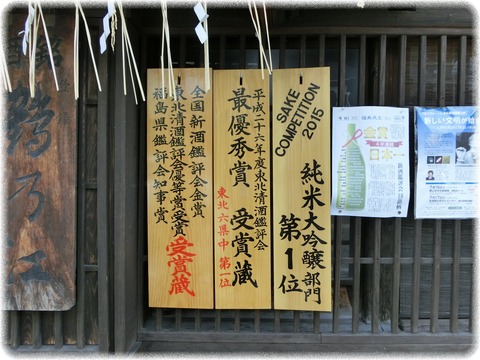 鶴乃江
全国新酒鑑評会金賞
東北清酒鑑評会優等賞受賞
福島県鑑評会知事賞
受賞蔵
平成二十六年度東北清酒鑑評会
最優秀賞 受賞蔵
東北六県中 第一位
SAKE
COMPETITION 2015
純米大吟醸部門
第1位
金賞
日本一
新しい文明が始